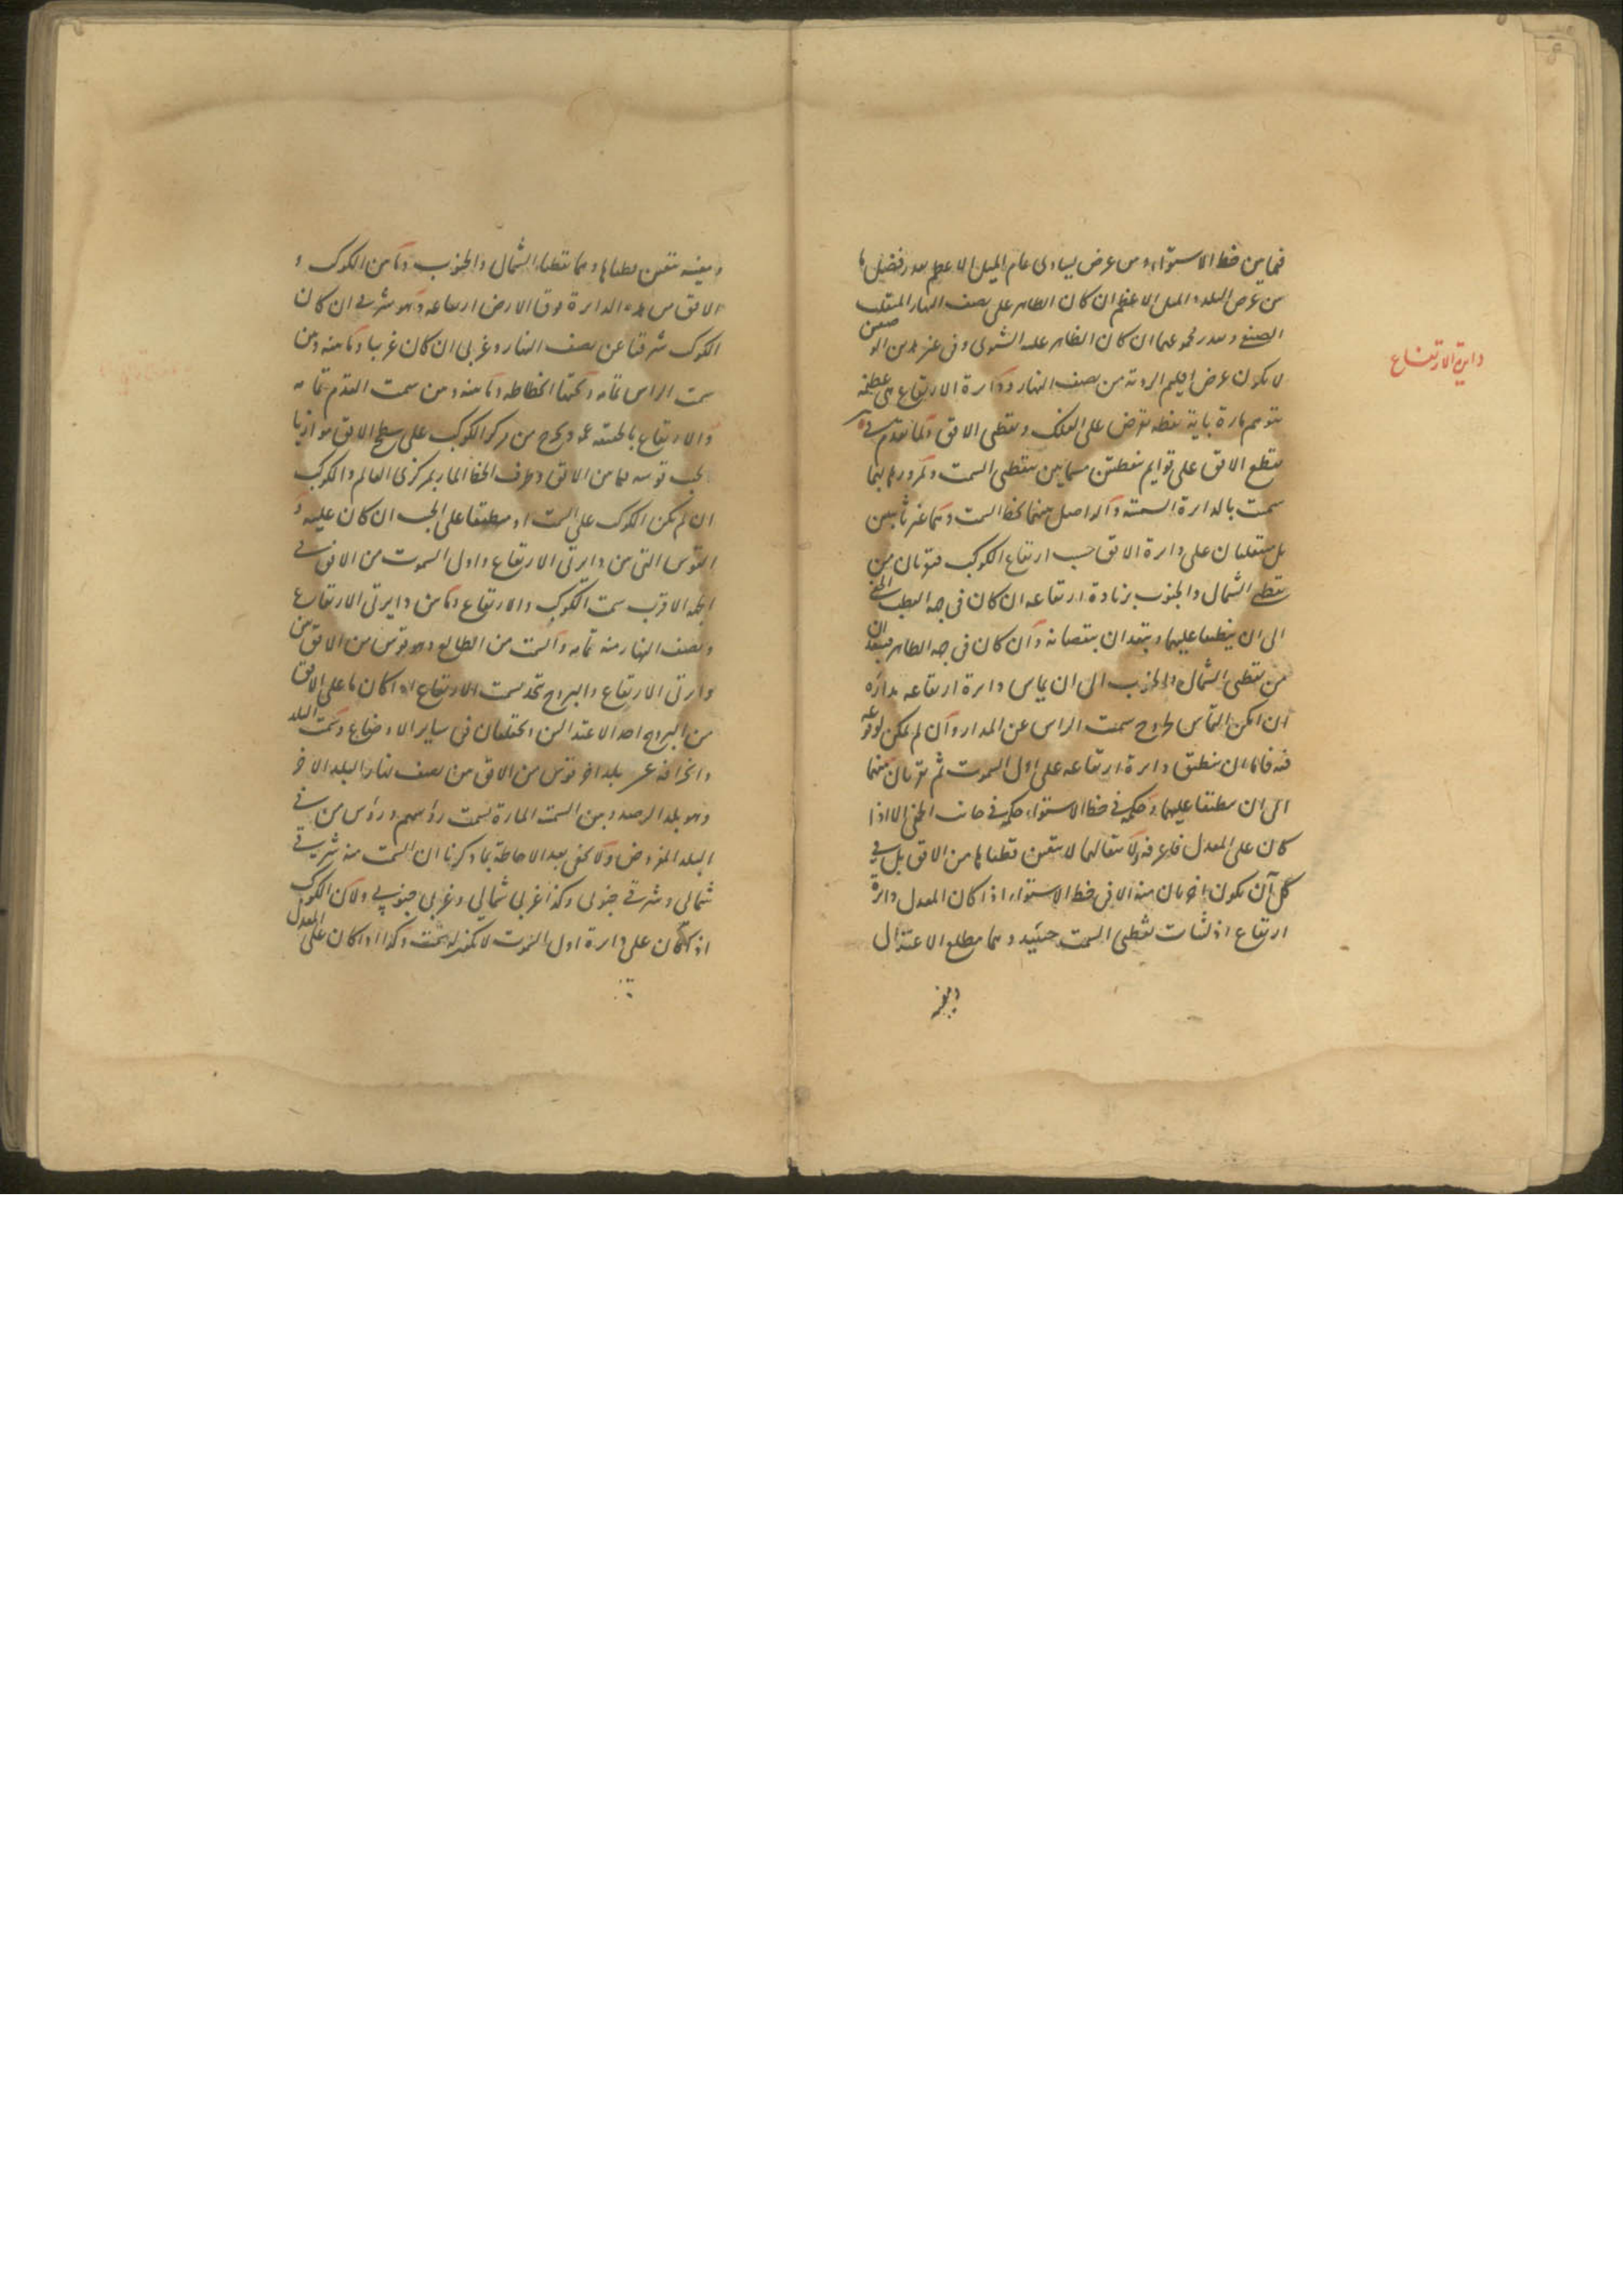 دايرة الارتفاع
فما بين خط الاستواء و من عرض يساوى تمام الميل الاعظم بقدر فضل ما
من عرض البلد و الميل الاعظم ان كان الظاهر على نصف النهار المنقلب
الصيفى و بقدر مجموعهما ان كان الظاهر عليه الشتوى و فى غير هذين الموضعين
لا يكون عرض اقليم الرؤية من نصف النهار و دائرة الارتفاع هى عظيمة
تتوهم مارة باية نقطة تفرض على الفلك و بقطبى الافق و لما تقدم
تقطع الافق على قوايم بنقطتين مسمايين بنقطتى السمت و لمرورها بهما
سميت بالدايرة السمتية و الواصل بينهما بخط السمت و هما غير ثابتين
بل منتقلتان على دايرة الافق حسب ارتفاع الكوكب فتقربان من
نقطتى الشمال و الجنوب بزيادة ارتفاعه ان كان فى جهة القطب الخفى
الى ان ينطبقا عليهما و تبعدان بنقصانه و ان كان فى جهة الظاهر فتبعدان
من نقطتى الشمال و الجنوب الى ان يماس دايرة ارتفاعه مداره
ان امكن التماس لخروج سمت الراس عن المدار و ان لم يمكن لوقوعه
فيه فالى ان تنطبق دايرة ارتفاعه على اول السموت ثم تقربان منهما
الى ان ينطبقا عليهما و حكمه فى خط الاستواء حكمه فى جانب الخفى الا اذا
كان على المعدل فاعرفه و لانتقالهما لا يتعين قطباها من الافق بل فى
كل آن يكون اخريان منه الا فى خط الاستواء اذا كان المعدل دايرة
ارتفاع اذ لثبات نقطتى السمت حينئذ و هما مطلع الاعتدال
و مغيبه
و مغيبه تتعين قطباها و هما نقطتا الشمال و الجنوب و ما بين الكوكب و
الافق من هذه الدايرة فوق الارض ارتفاعه و هو شرقى ان كان
الكوكب شرقيا عن نصف النهار و غربى ان كان غربيا و ما بينه و بين
سمت الراس تمامه و تحتها انحطاطه و ما بينه و من سمت القدم تمامه
و الارتفاع بالحقيقة عمود يخرج من مركز الكوكب على سطح الافق موازيا
لجيب قوسه فيما بين الافق و طرف الخط المار بمركزى العالم و الكوكب
ان لم يكن الكوكب على السمت او منطبقا على الجيب ان كان عليه و
القوس التى من دايرتى الارتفاع و اول السموت من الافق فى
الجهة الاقرب سمت الكوكب و الارتفاع و ما بين دايرتى الارتفاع
و نصف النهار منه تمامه و السمت من الطالع و هو قوس من الافق بين
دايرتى الارتفاع و البروج تتحد بسمت الارتفاع اذا كان ما على الافق
من البروج احد الاعتدالين و تختلفان فى ساير الاوضاع و سمت البلد
و انحرافه عن بلد اخر قوس من الافق من نصف نهار البلد الاخر
و هو بلد الرصد و بين السمت المارة بسمت رؤسهم و رؤس من فى
البلد المفروض و لا يخفى بعد الاحاطة بما ذكرنا ان السمت منه شرقى
شمالى و شرقى جنوبى و كذا غربى شمالى و غربى جنوبى و لان الكوكب
اذا كان على دايرة اول السموت لا يكون له سمت و كذا اذا كان على المعدل